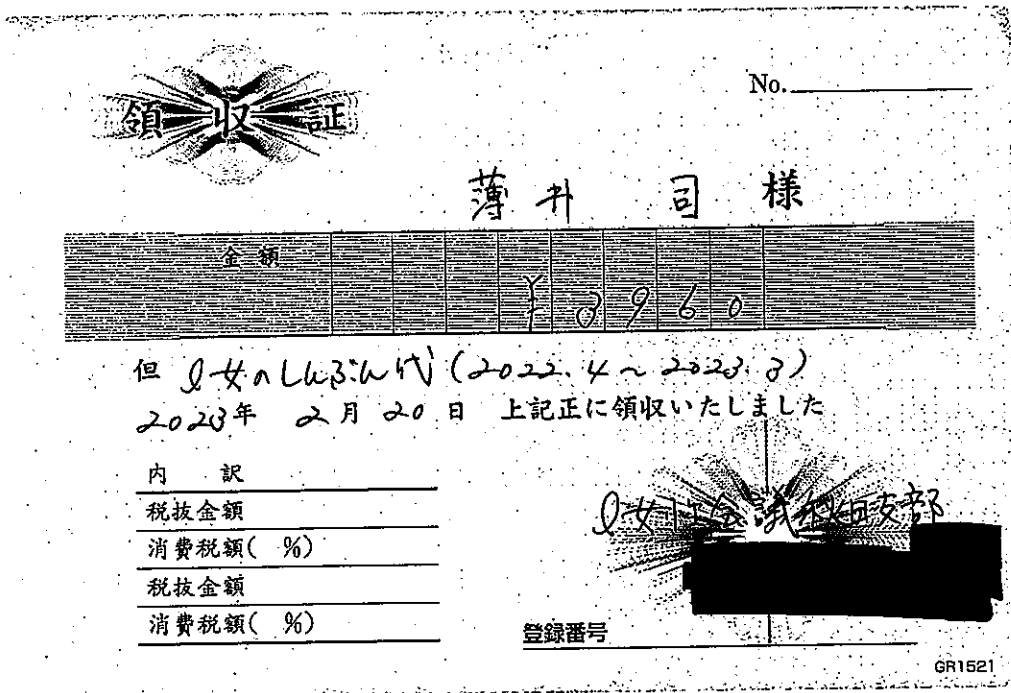 No.
領収証
薄井 司 様
金額 ¥3960
但 I女のしんぶん代 (2022.4〜2023.3)
2023年 2月 20日 上記正に領収いたしました
内 訳
税抜金額
消費税額( %)
税抜金額
消費税額( %)
I女性会議秋田支部
登録番号
GR1521